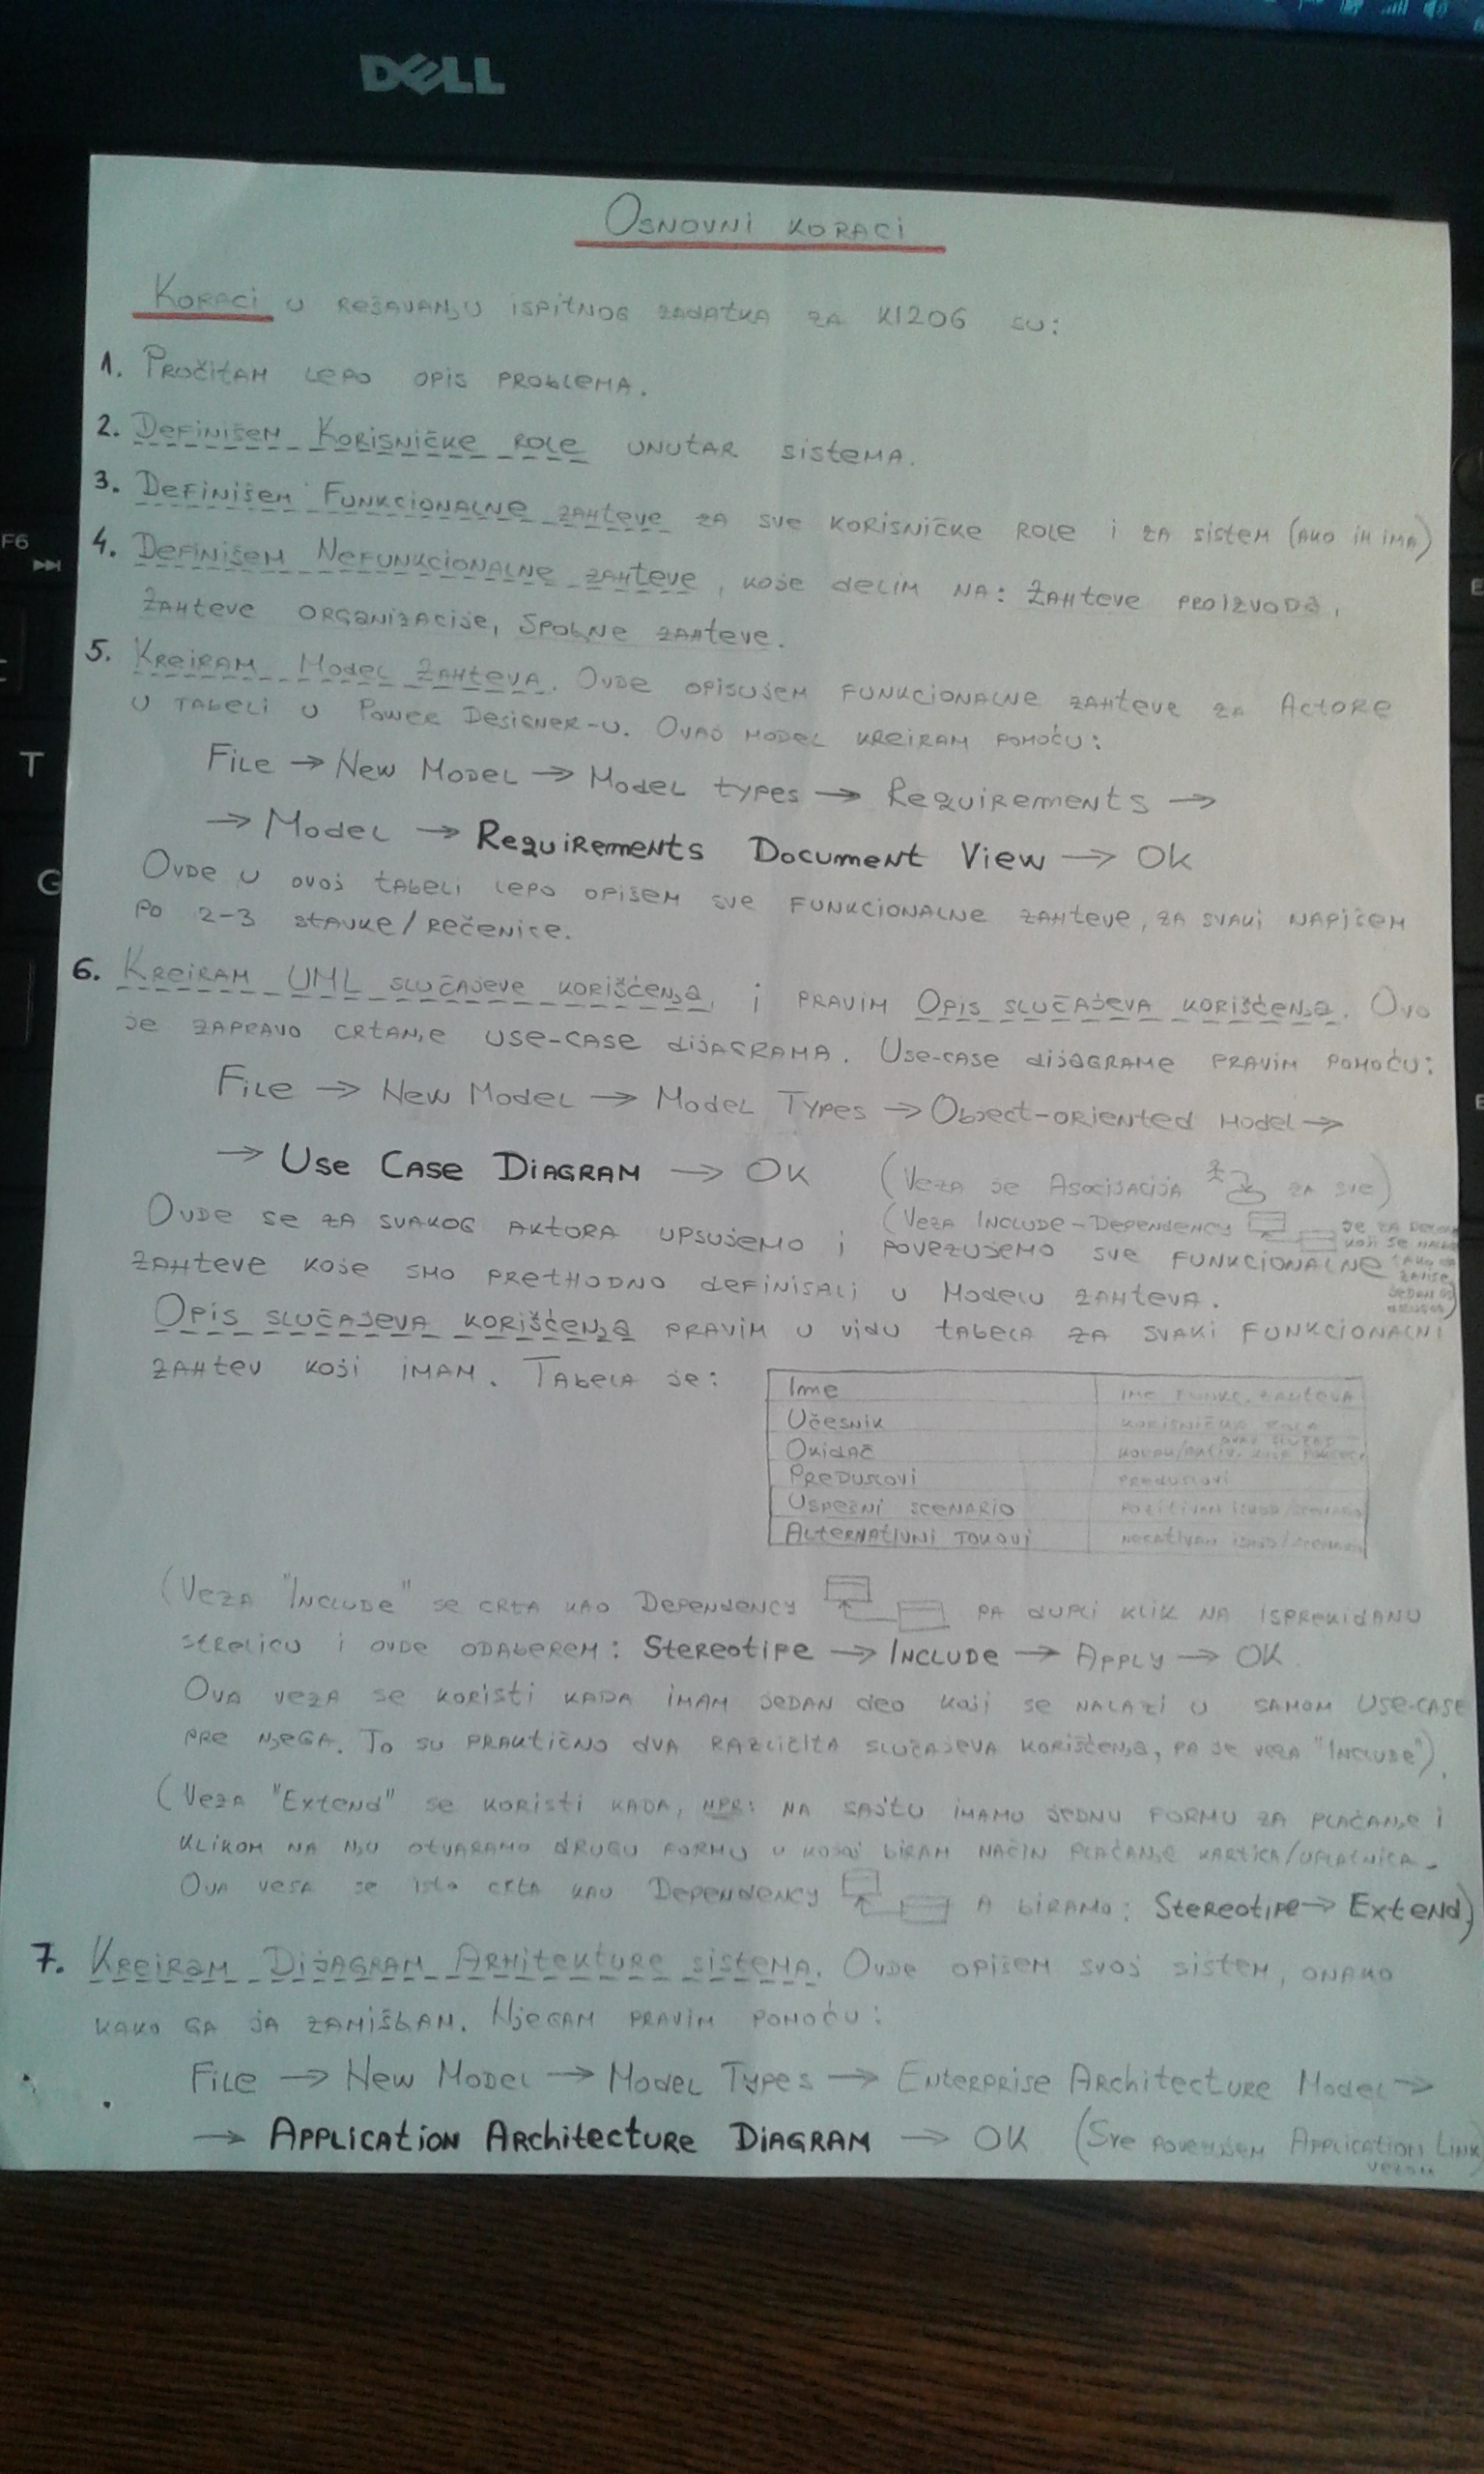 DELL
OSNOVNI KORACI
KORACI U REŠAVANJU ISPITNOG ZADATKA ZA KI206 SU:
1. PROČITAM LEPO OPIS PROBLEMA.
2. DEFINIŠEM KORISNIČKE ROLE UNUTAR SISTEMA.
3. DEFINIŠEM FUNKCIONALNE ZAHTEVE ZA SVE KORISNIČKE ROLE I ZA SISTEM (AKO IH IMA)
F6
4. DEFINIŠEM NEFUNKCIONALNE ZAHTEVE, KOJE DELIM NA: ZAHTEVE PROIZVODA,
ZAHTEVE ORGANIZACIJE, SPOLJNE ZAHTEVE.
5. KREIRAM MODEL ZAHTEVA. OVDE OPISUJEM FUNKCIONALNE ZAHTEVE ZA ACTORE
U TABELI U POWER DESIGNER-U. OVAJ MODEL KREIRAM POMOĆU:
T
FILE → NEW MODEL → MODEL TYPES → REQUIREMENTS →
→ MODEL → REQUIREMENTS DOCUMENT VIEW → OK
G
OVDE U OVOJ TABELI LEPO OPIŠEM SVE FUNKCIONALNE ZAHTEVE, ZA SVAKI NAPIŠEM
PO 2-3 STAVKE/REČENICE.
6. KREIRAM UML SLUČAJEVE KORIŠĆENJA, I PRAVIM OPIS SLUČAJEVA KORIŠĆENJA. OVO
JE ZAPRAVO CRTANJE USE-CASE DIJAGRAMA. USE-CASE DIJAGRAME PRAVIM POMOĆU:
FILE → NEW MODEL → MODEL TYPES → OBJECT-ORIENTED MODEL →
→ USE CASE DIAGRAM → OK
(VEZA JE ASOCIJACIJA ZA SVE)
(VEZA INCLUDE-DEPENDENCY JE ZA
KOJI SE
JEDAN OD
OVDE SE ZA SVAKOG AKTORA UPSUJEMO I POVEZUJEMO SVE FUNKCIONALNE
ZAHTEVE KOJE SMO PRETHODNO DEFINISALI U MODELU ZAHTEVA.
OPIS SLUČAJEVA KORIŠĆENJA PRAVIM U VIDU TABELA ZA SVAKI FUNKCIONALNI
ZAHTEV KOJI IMAM. TABELA JE:
IME IME FUNKC. ZAHTEVA
UČESNIK KORISNIČKA ROLA
OKIDAČ
PREDUSLOVI PREDUSLOVI
USPEŠNI SCENARIO POZITIVAN ISHOD/SCENARIO
ALTERNATIVNI TOKOVI NEGATIVAN ISHOD/SCENARIO
(VEZA "INCLUDE" SE CRTA KAO DEPENDENCY PA DUPLI KLIK NA ISPREKIDANU
STRELICU I OVDE ODABEREM: STEREOTIPE → INCLUDE → APPLY → OK
OVA VEZA SE KORISTI KADA IMAM JEDAN DEO KOJI SE NALAZI U SAMOM USE-CASE
PRE NJEGA. TO SU PRAKTIČNO DVA RAZLIČITA SLUČAJEVA KORIŠĆENJA, PA JE VEZA "INCLUDE").
(VEZA "EXTEND" SE KORISTI KADA, NPR: NA SAJTU IMAMO JEDNU FORMU ZA PLAĆANJE I
KLIKOM NA NJU OTVARAMO DRUGU FORMU U KOJOJ BIRAM NAČIN PLAĆANJE KARTICA/UPLATNICA.
OVA VEZA SE ISTO CRTA KAO DEPENDENCY A BIRAMO: STEREOTIPE → EXTEND)
7. KREIRAM DIJAGRAM ARHITEKTURE SISTEMA. OVDE OPIŠEM SVOJ SISTEM, ONAKO
KAKO GA JA ZAMIŠLJAM. NJEGA PRAVIM POMOĆU:
FILE → NEW MODEL → MODEL TYPES → ENTERPRISE ARCHITECTURE MODEL →
→ APPLICATION ARCHITECTURE DIAGRAM → OK (SVE POVEZUJEM APPLICATION LINK
VEZOM